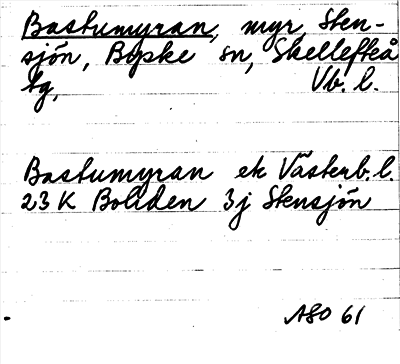 Bastumyran, myr, Sten-
sjön, Bopske sn, Skellefteå
tg, Vb. l.
Bastumyran ek Västerb. l.
23 K Boliden 3j Stensjön
ASO 61